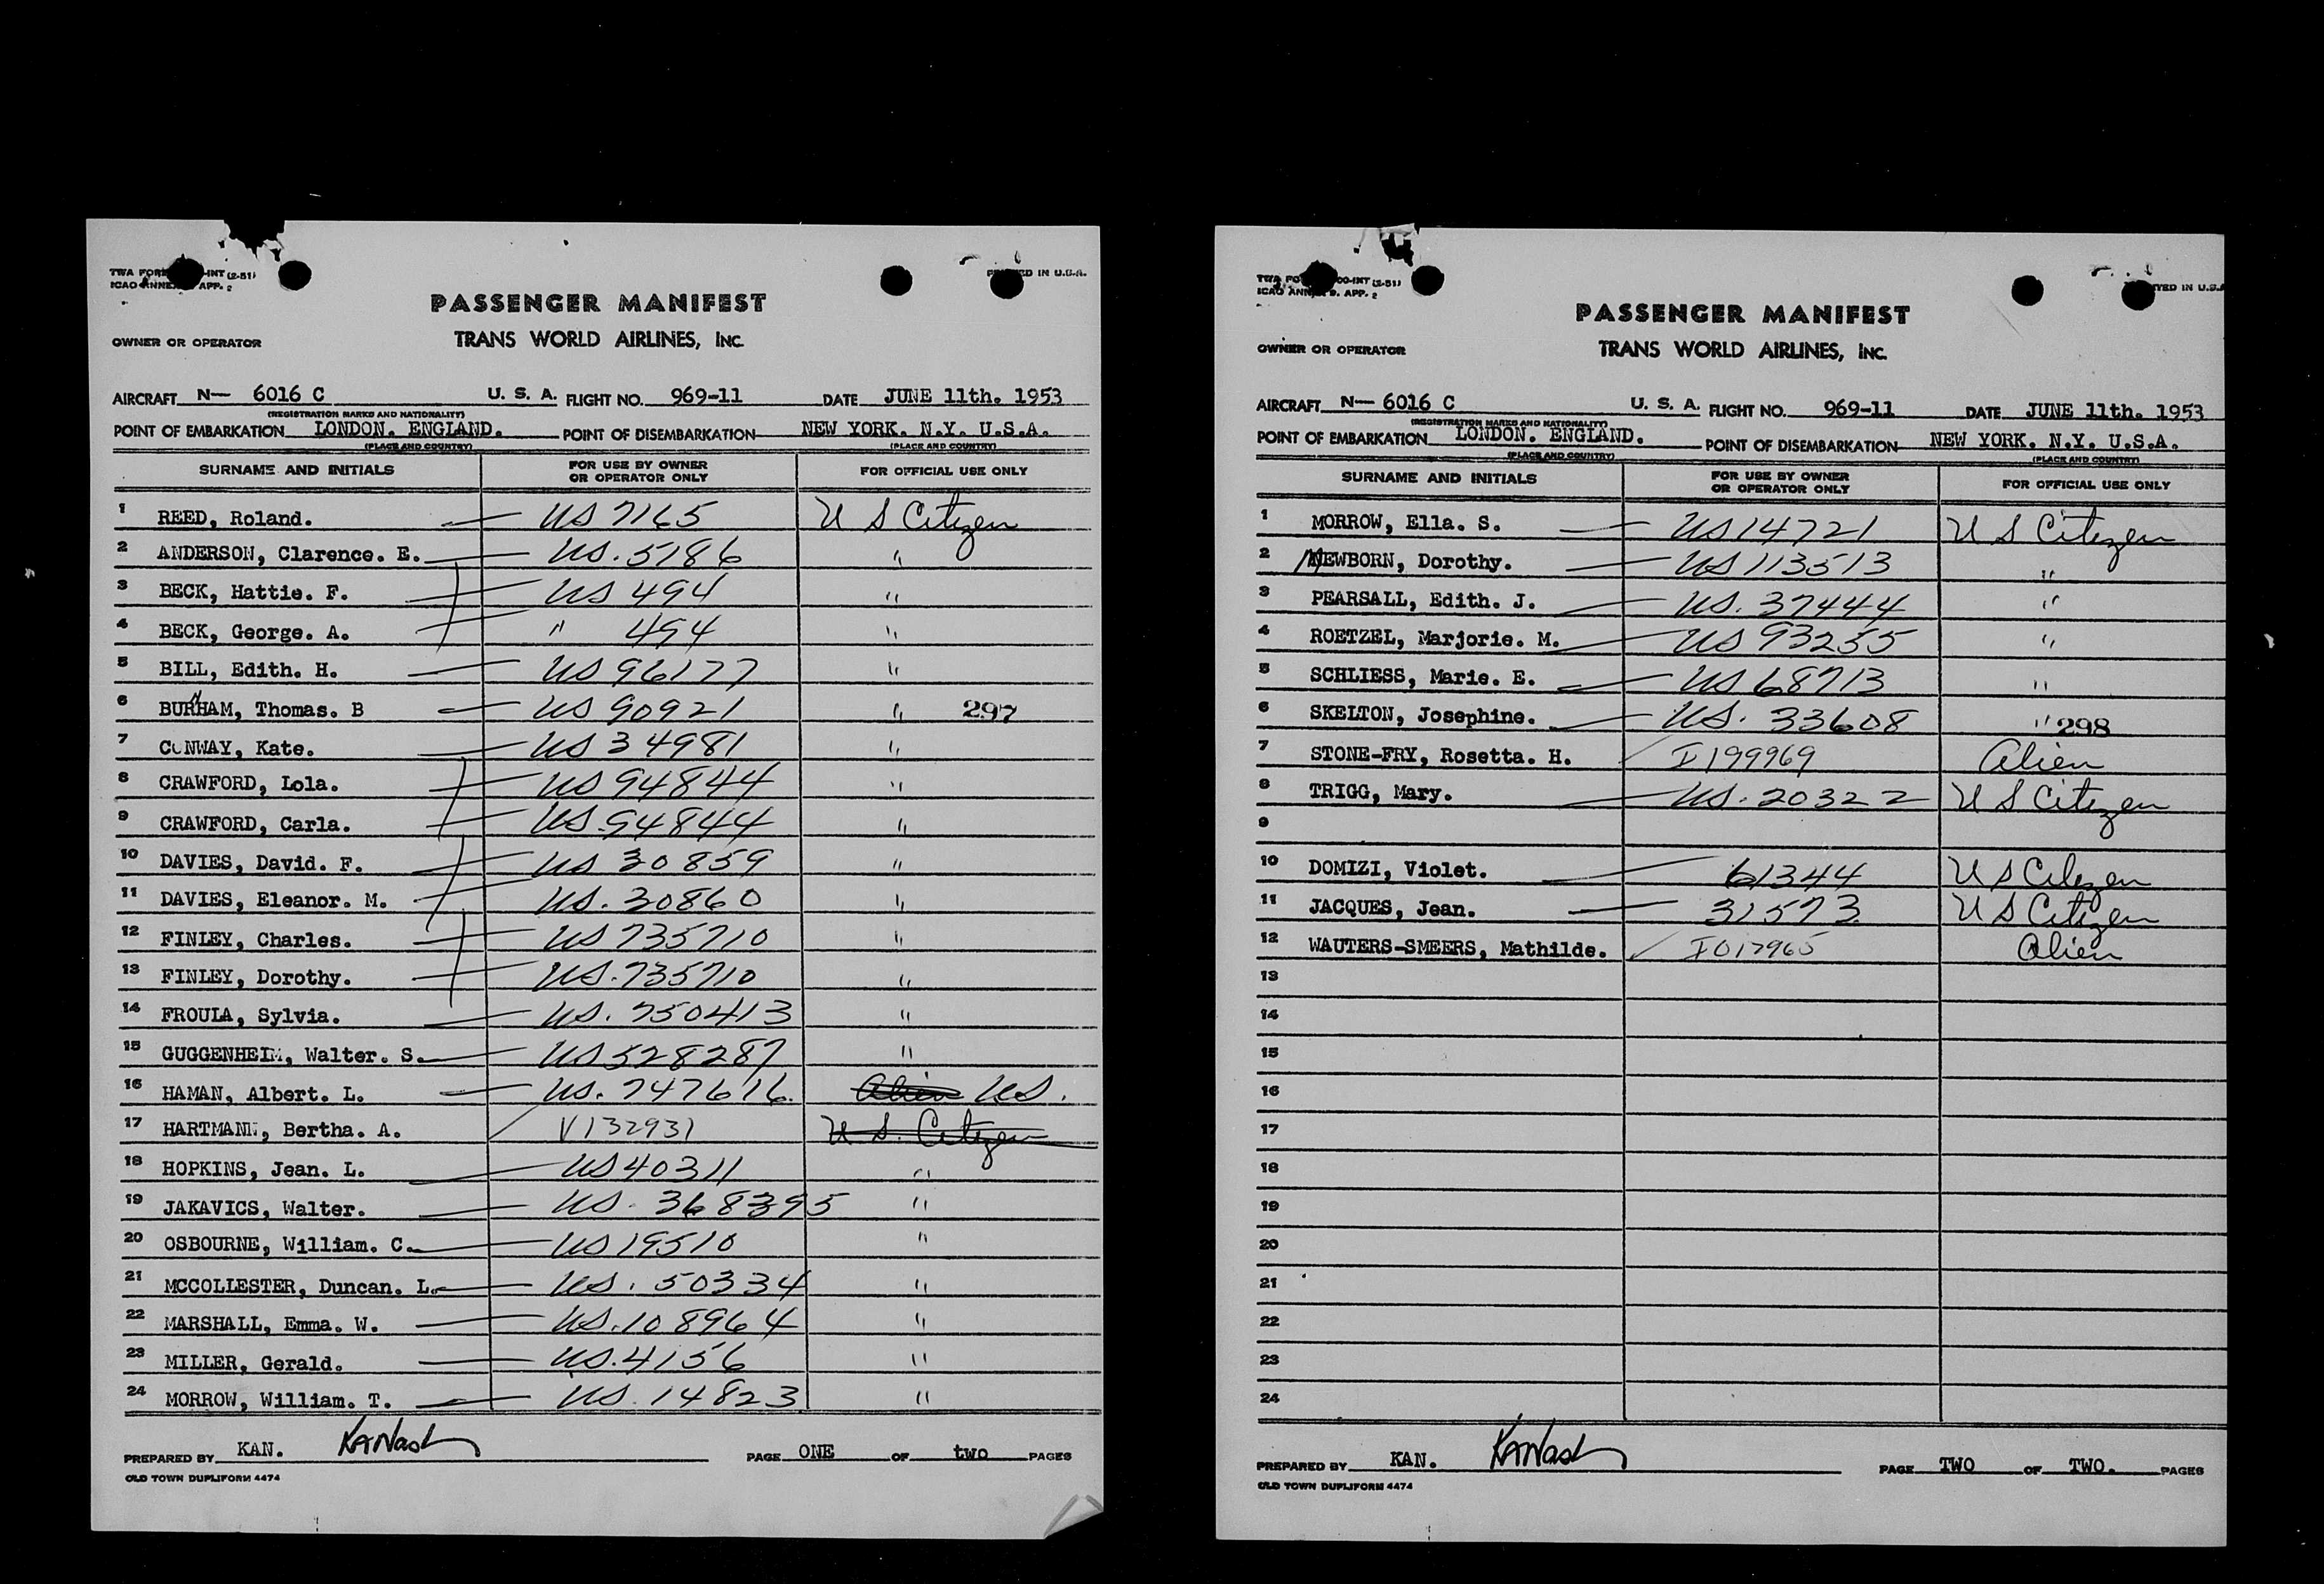 PASSENGER MANIFEST
TRANS WORLD AIRLINES, INC.
OWNER OR OPERATOR
AIRCRAFT N— 6016 C U. S. A. FLIGHT NO. 969-11 DATE JUNE 11th. 1953
(REGISTRATION MARKS AND NATIONALITY)
POINT OF EMBARKATION LONDON. ENGLAND. POINT OF DISEMBARKATION NEW YORK. N.Y. U.S.A.
(PLACE AND COUNTRY) (PLACE AND COUNTRY)
SURNAME AND INITIALS FOR USE BY OWNER OR OPERATOR ONLY FOR OFFICIAL USE ONLY
1 REED, Roland. US 7165 U S Citizen
2 ANDERSON, Clarence. E. US. 5786 "
3 BECK, Hattie. F. US 494 "
4 BECK, George. A. " 494 "
5 BILL, Edith. H. US 96177 "
6 BURNHAM, Thomas. B US 90921 " 297
7 CONWAY, Kate. US 34981 "
8 CRAWFORD, Lola. US 94844 "
9 CRAWFORD, Carla. US. 94844 "
10 DAVIES, David. F. US 30859 "
11 DAVIES, Eleanor. M. US. 30860 "
12 FINLEY, Charles. US 735710 "
13 FINLEY, Dorothy. US. 735710 "
14 FROULA, Sylvia. US. 750413 "
15 GUGGENHEIM, Walter. S. US 528287 "
16 HAMAN, Albert. L. US. 747616. Alien US.
17 HARTMANN, Bertha. A. V132931 U. S. Citizen
18 HOPKINS, Jean. L. US 40311 "
19 JAKAVICS, Walter. US. 368395 "
20 OSBOURNE, William. C. US 19510 "
21 MCCOLLESTER, Duncan. L. US. 50334 "
22 MARSHALL, Emma. W. US. 108964 "
23 MILLER, Gerald. US. 4156 "
24 MORROW, William. T. US. 14823 "
PREPARED BY KAN. KANash PAGE ONE OF two PAGES
OLD TOWN DUPLIFORM 4474
PASSENGER MANIFEST
TRANS WORLD AIRLINES, INC.
OWNER OR OPERATOR
AIRCRAFT N— 6016 C U. S. A. FLIGHT NO. 969-11 DATE JUNE 11th. 1953
(REGISTRATION MARKS AND NATIONALITY)
POINT OF EMBARKATION LONDON. ENGLAND. POINT OF DISEMBARKATION NEW YORK. N.Y. U.S.A.
(PLACE AND COUNTRY) (PLACE AND COUNTRY)
SURNAME AND INITIALS FOR USE BY OWNER OR OPERATOR ONLY FOR OFFICIAL USE ONLY
1 MORROW, Ella. S. US 14721 U S Citizen
2 NEWBORN, Dorothy. US 113513 "
3 PEARSALL, Edith. J. US. 37444 "
4 ROETZEL, Marjorie. M. US 93255 "
5 SCHLIESS, Marie. E. US 68713 "
6 SKELTON, Josephine. US. 33608 " 298
7 STONE-FRY, Rosetta. H. I199969 Alien
8 TRIGG, Mary. US. 20322 U S Citizen
9
10 DOMIZI, Violet. 61344 U S Citizen
11 JACQUES, Jean. 31573 U S Citizen
12 WAUTERS-SMEERS, Mathilde. I017965 Alien
13
14
15
16
17
18
19
20
21
22
23
24
PREPARED BY KAN. KANash PAGE TWO OF TWO. PAGES
OLD TOWN DUPLIFORM 4474